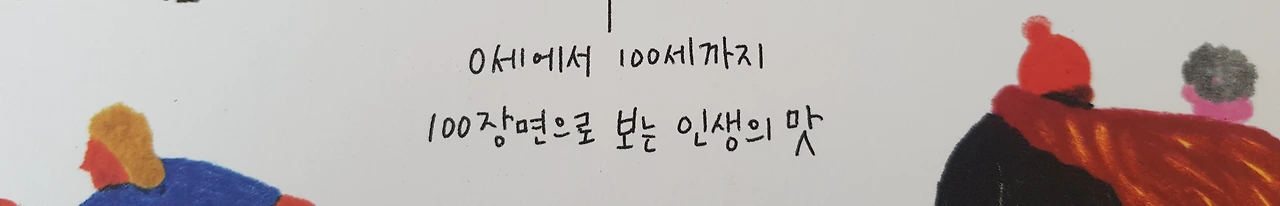 0세에서 100세까지
100장면으로 보는 인생의 맛